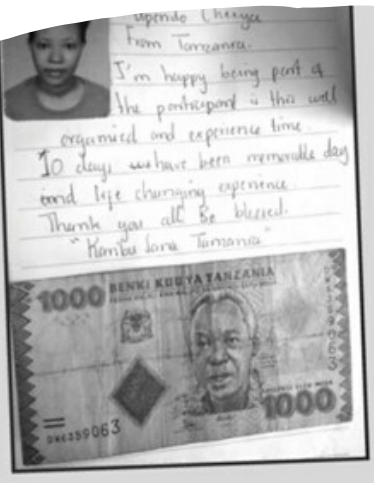 Upendo
From Tanzania.
I'm happy being part of
the participant in this well
organised and experience time.
10 days we have been memorable day
and life changing experience.
Thank you all Be blessed.
"Karibu sana Tanzania"
1000 BENKI KUU YA TANZANIA
1000
DN6359063